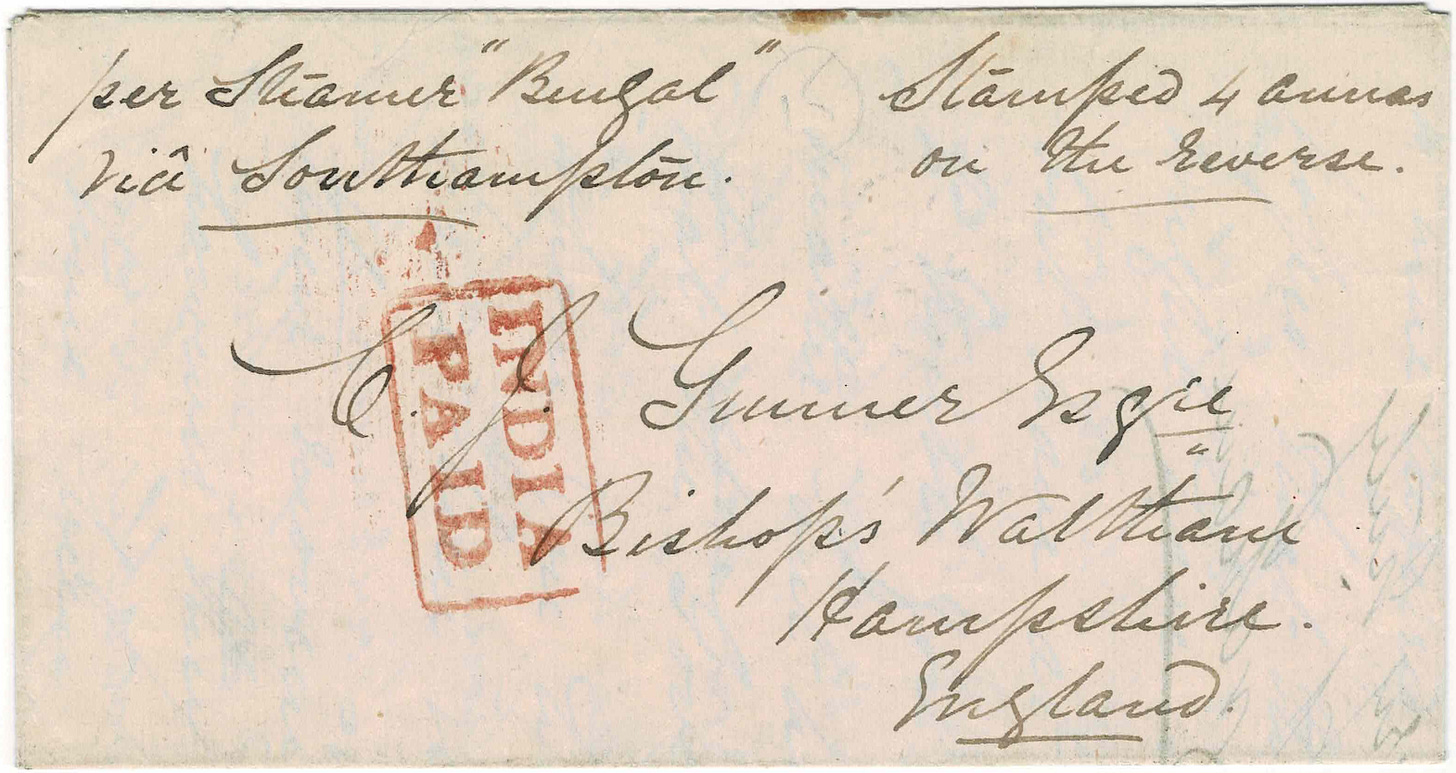 per Steamer "Bengal"
viâ Southampton.
Stamped 4 annas
on the reverse.
INDIA
PAID
C. J. Gunner Esqre
Bishop's Waltham
Hampshire.
England